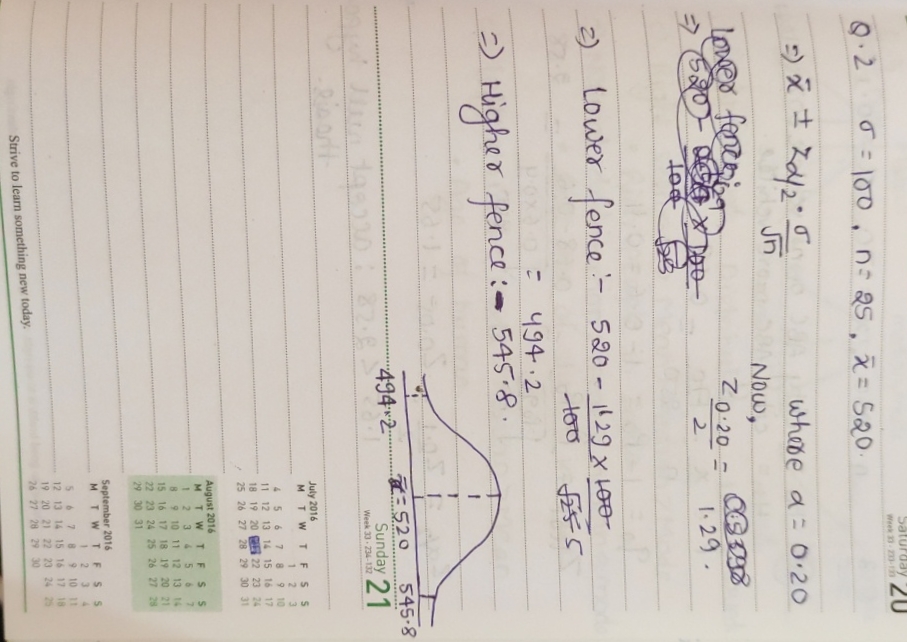 Saturday 20
Week 33 - 233-133
Q.2 σ = 100, n = 25, x̄ = 520.
⇒ x̄ ± Zα/2 · σ/√n where α = 0.20
Now,
Z 0.20/2 = 1.29.
Lower fence:
⇒ 520 -
⇒ Lower fence :- 520 - 1.29 × 100/√25 5
100
= 494.2
⇒ Higher fence :- 545.8.
494.2 x̄ = 520 545.8
Sunday 21
Week 33 - 234-132
July 2016
M T W T F S S
1 2 3
4 5 6 7 8 9 10
11 12 13 14 15 16 17
18 19 20 22 23 24
25 26 27 28 29 30 31
August 2016
M T W T F S S
1 2 3 4 5 6 7
8 9 10 11 12 13 14
15 16 17 18 19 20 21
22 23 24 25 26 27 28
29 30 31
September 2016
M T W T F S S
1 2 3 4
5 6 7 8 9 10 11
12 13 14 15 16 17 18
19 20 21 22 23 24 25
26 27 28 29 30
Strive to learn something new today.